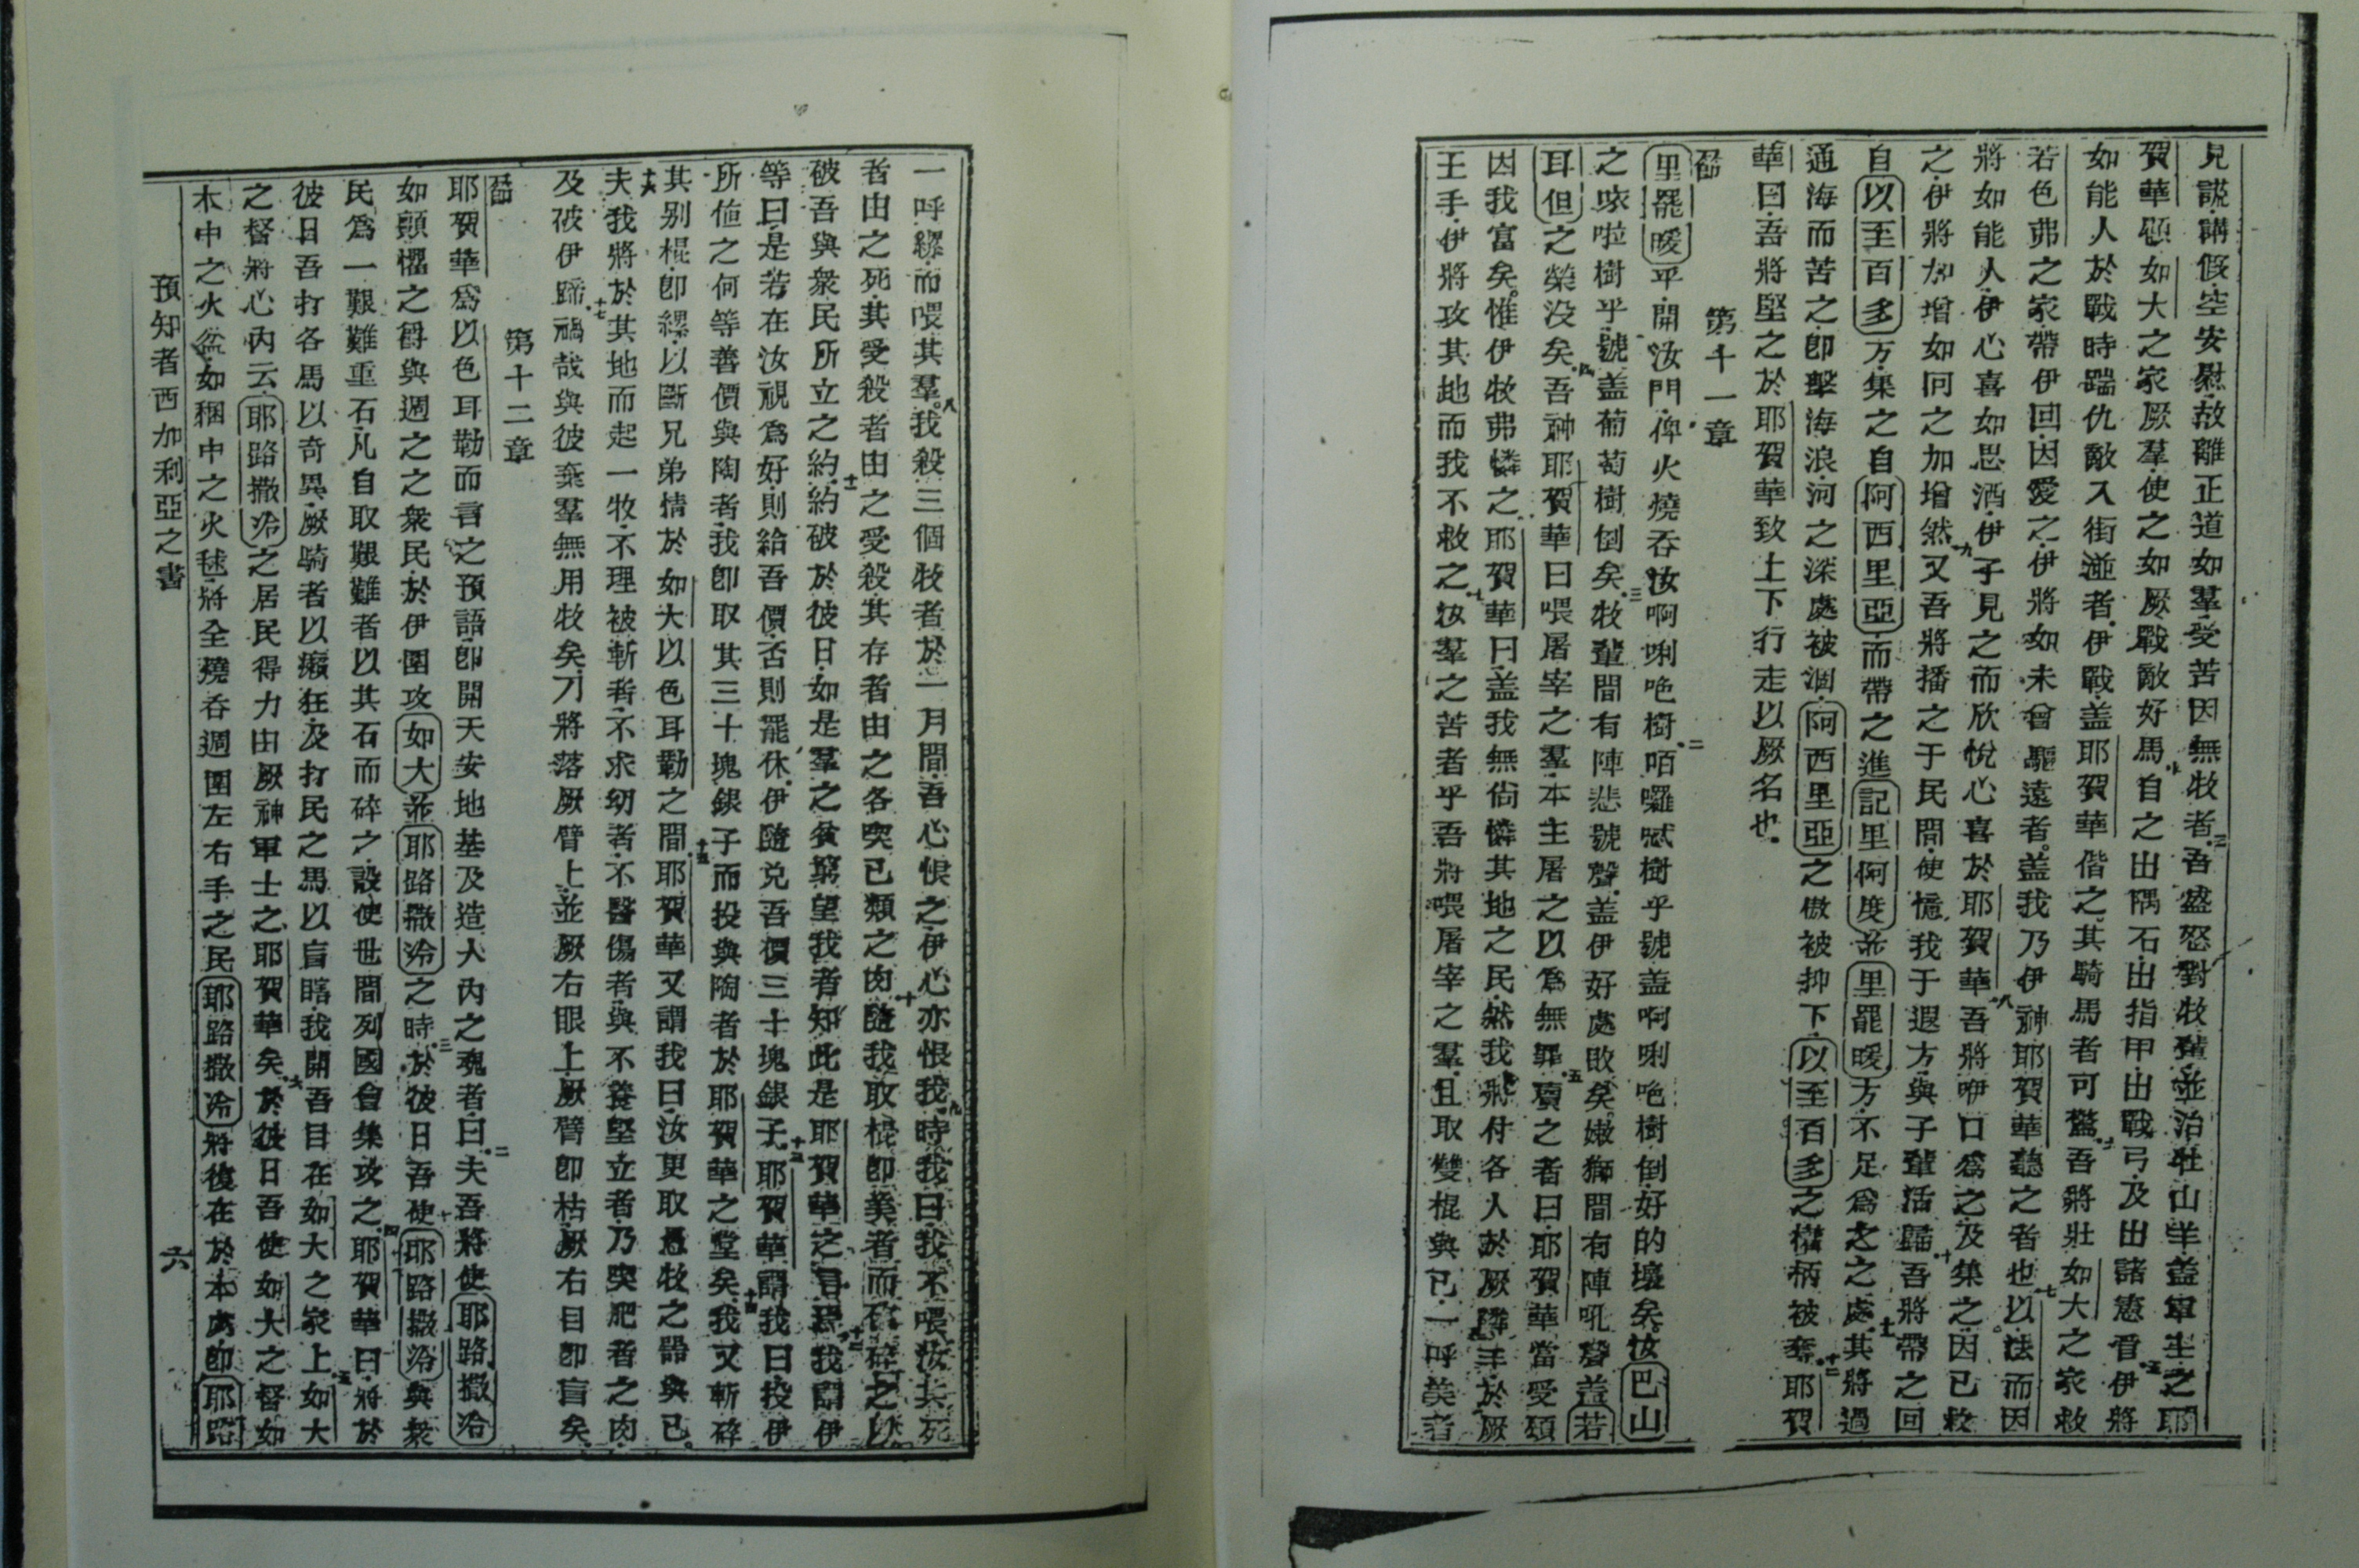 見說講假空安慰故離正道如羣受苦因無牧者三吾盛怒對牧輩並治牡山羊蓋軍生之耶
賀華顧如大之家厥羣使之如厥戰敵好馬四自之出隅石出指甲出戰弓及出諸憲官五伊將
如能人於戰時踹仇敵入街澁者伊戰蓋耶賀華偕之其騎馬者可驚六吾將壯如大之家救
若色弗之家帶伊回因愛之伊將如未曾驅遠者蓋我乃伊神耶賀華聽之者也七以法而因
將如能人伊心喜如思酒伊子見之而欣悅心喜於耶賀華八吾將咿口為之及集之因已救
之伊將加增如同之加增然九又吾將播之于民間使憶我于遐方與子輩活歸十吾將帶之回
自以至百多方集之自阿西里亞而帶之進記里阿度並里罷暖方不足為之之處十一其將過
通海而苦之卽擊海浪河之深處被涸阿西里亞之傲被抑下以至百多之權柄被奪十二耶賀
華曰吾將堅之於耶賀華致上下行走以厥名也
第十一章
一節
里罷暖乎開汝門俾火燒吞汝啊唎吔樹二咟囉忒樹乎號蓋啊唎吔樹倒好的壞矣汝巴山
之㖠啦樹乎號蓋葡萄樹倒矣三牧輩間有陣悲號聲蓋伊好處敗矣嫩獅間有陣吼聲蓋若
耳但之榮没矣四吾神耶賀華曰喂屠宰之羣五本主屠之以為無罪賣之者曰耶賀華當受頌
因我富矣惟伊牧弗憐之六耶賀華曰蓋我無尚憐其地之民然我將付各人於厥隣手於厥
王手伊將攻其地而我不救之七汝羣之苦者乎吾將喂屠宰之羣且取雙棍與已一呼美者
一呼縲而喂其羣八我殺三個牧者於一月間吾心恨之伊心亦恨我九時我曰我不喂汝其死
者由之死其受殺者由之受殺其存者由之各㕵已類之肉十隨我取棍卽美者而砍碎之以
破吾與衆民所立之約十一約破於彼日如是羣之貧窮望我者知此是耶賀華之言語十二我謂伊
等曰是若在汝視為好則給吾價否則罷休伊隨兌吾價三十塊銀子十三耶賀華謂我曰投伊
所値之何等善價與陶者我卽取其三十塊銀子而投與陶者於耶賀華之堂矣十四我又斬碎
其別棍卽縲以斷兄弟情於如大以色耳勒之間十五耶賀華又謂我曰汝更取愚牧之器與已
十六夫我將於其地而起一牧不理被斬者不求幼者不醫傷者與不養堅立者乃㕵肥者之肉
及破伊蹄十七禍哉與彼棄羣無用牧矣刀將落厥臂上並厥右眼上厥臂卽枯厥右目卽盲矣
第十二章
一節
耶賀華為以色耳勒而言之預語卽開天安地基及造人內之魂者曰二夫吾將使耶路撒冷
如顫懼之爵與週之之衆民於伊圍攻如大並耶路撒冷之時三於彼日吾使耶路撒冷與衆
民為一艱難重石凡自取艱難者以其石而碎之設使世間列國會集攻之四耶賀華曰將於
彼日吾打各馬以奇異厥騎者以癲狂及打民之馬以盲瞎我開吾目在如大之家上五如大
之督將心內云耶路撒冷之居民得力由厥神軍士之耶賀華矣六於彼日吾使如大之督如
木中之火盆如稛中之火毬將全燒呑週圍左右手之民耶路撒冷將復在於本處卽耶路
預知者西加利亞之書
六